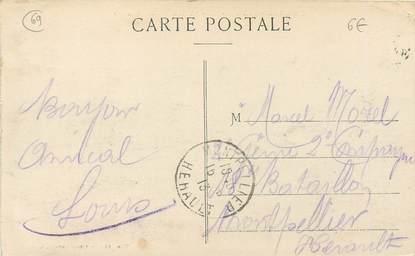 69
CARTE POSTALE
6€
Bonjour
amical
Louis
M Marcel Morel
2e Compagnie
Bataillon
Montpellier
Hérault
MONTPELLIER
HERAULT